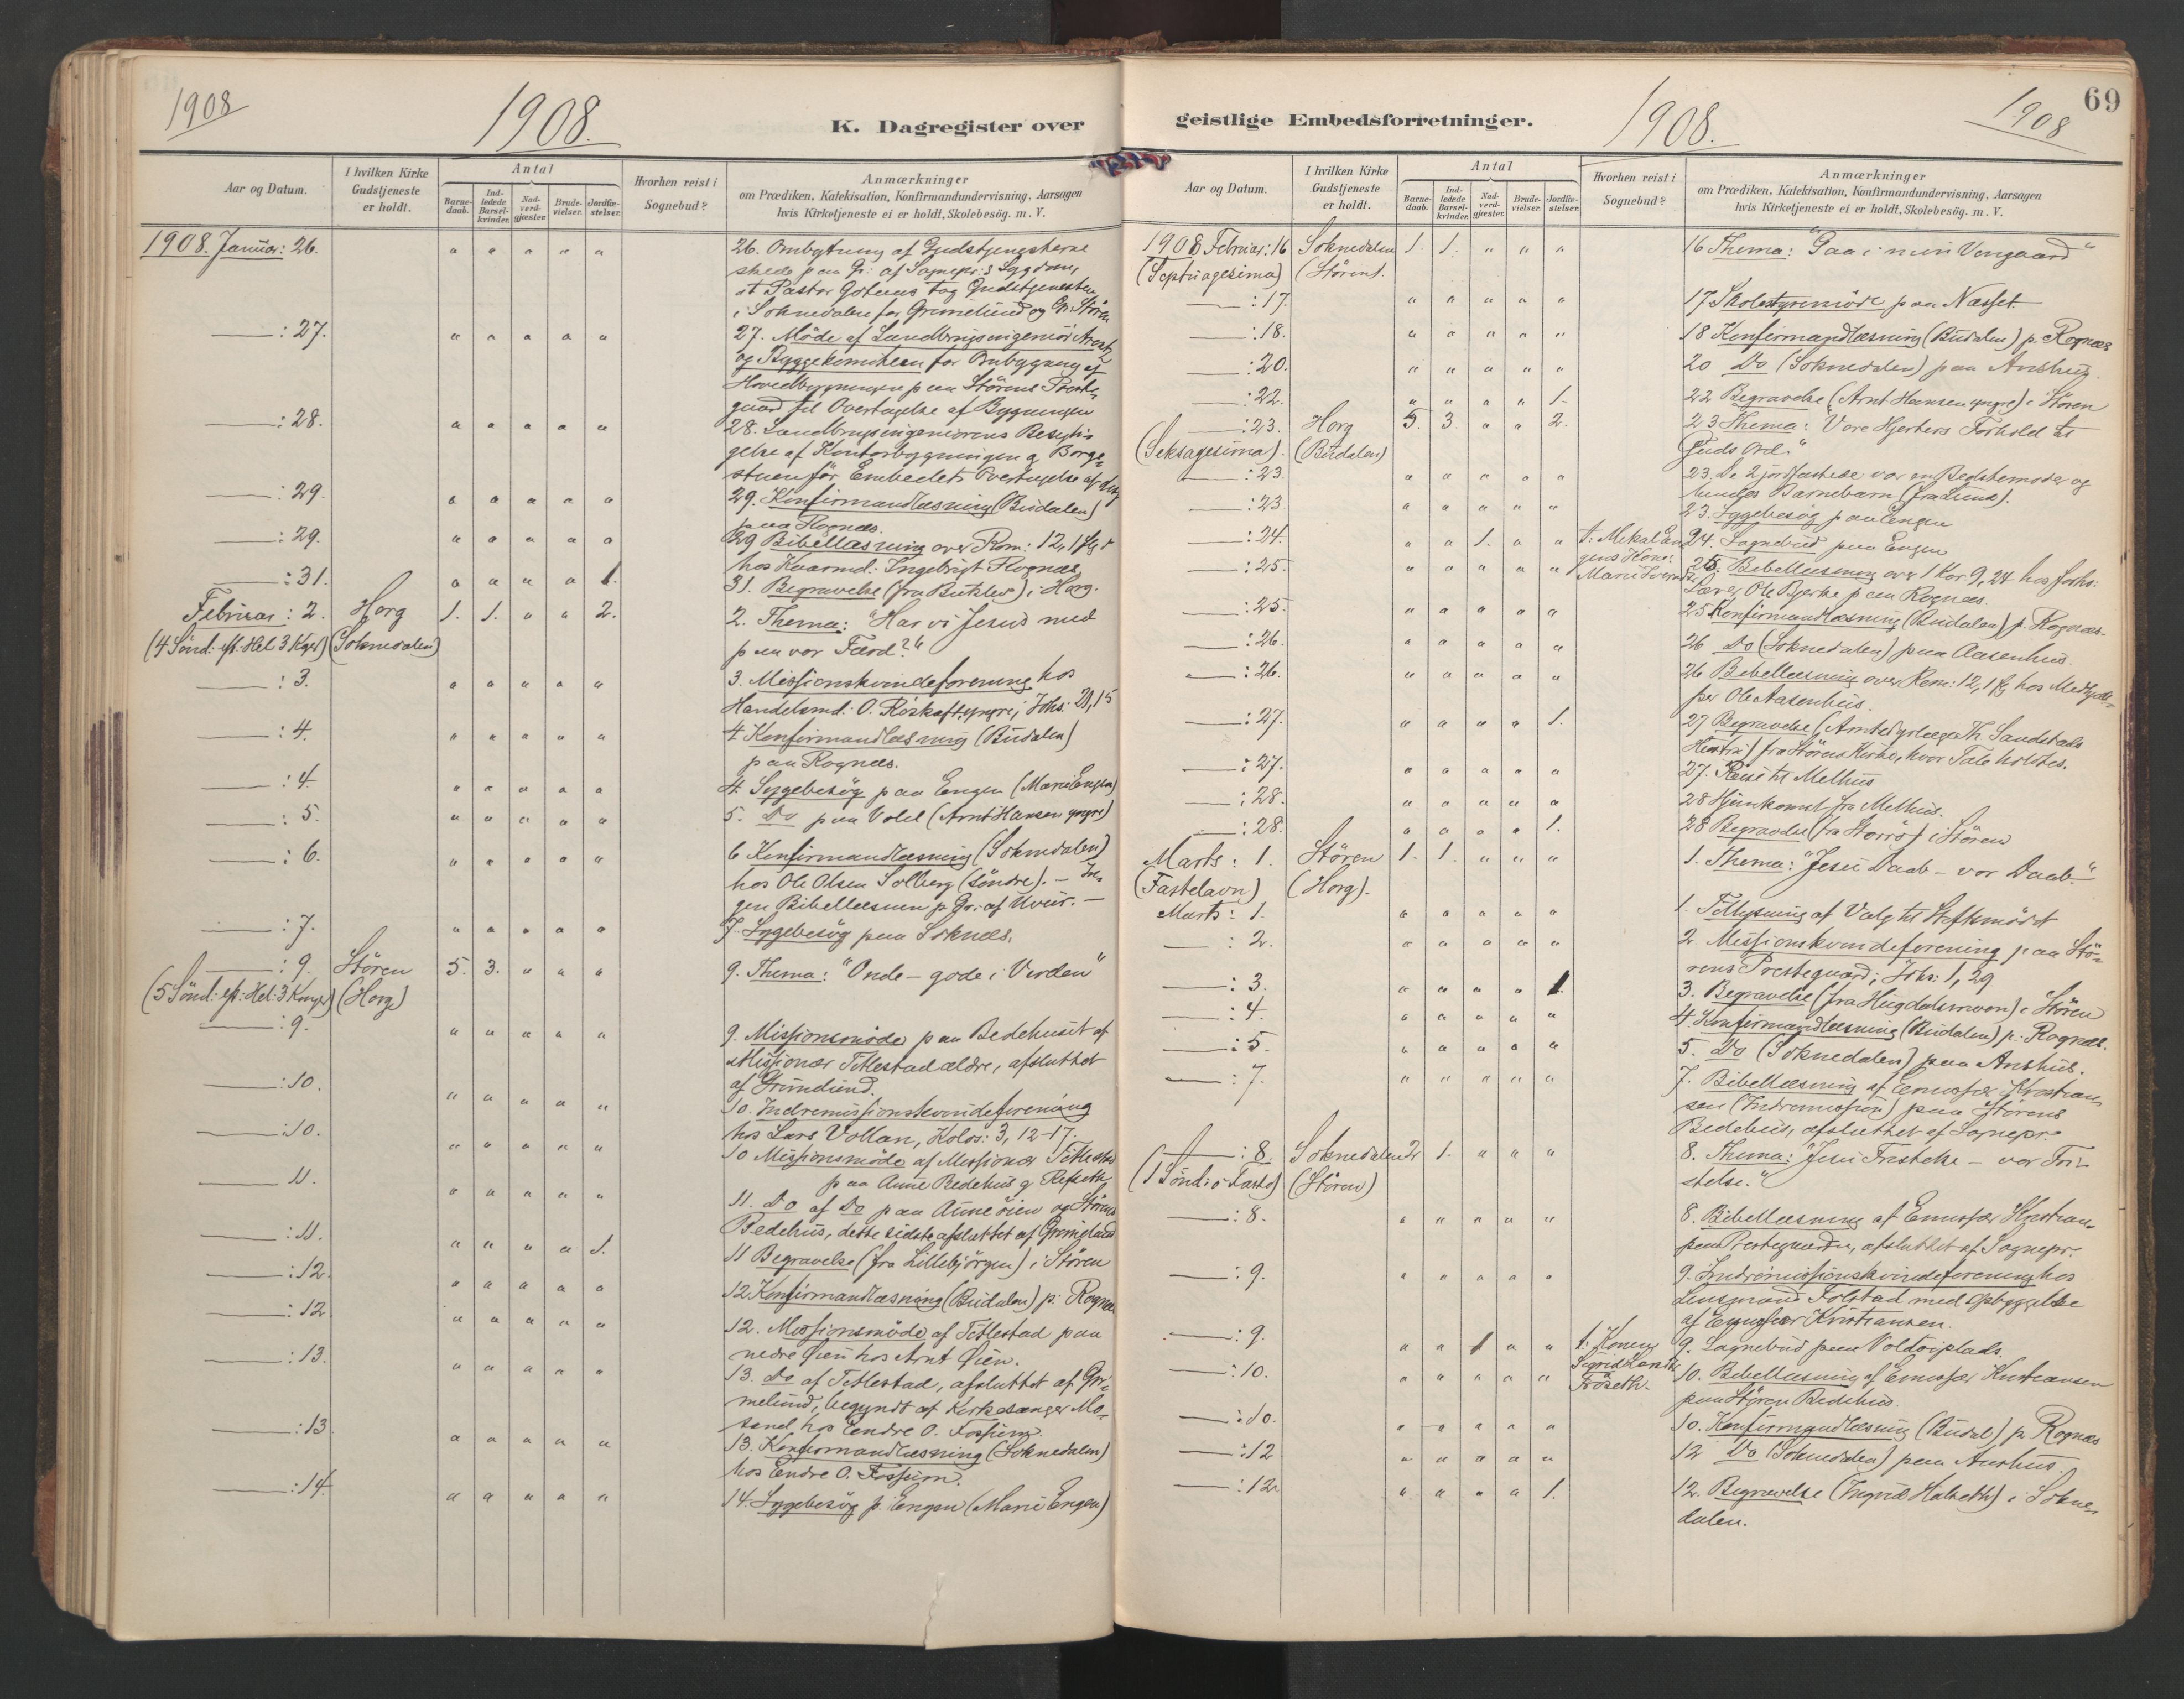 1908
1908.
K. Dagregister over
Aar og Datum.
I hvilken Kirke
Gudstjeneste
er holdt.
Antal
Barne-
daab.
Ind-
ledede
Barsel-
kvinder.
Nad-
verd-
gjæster
Brude-
vielser.
Jordfæ-
stelser.
Hvorhen reist i
Sognebud?
Anmærkninger
om Prædiken, Katekisation, Konfirmandundervisning, Aarsagen
hvis Kirketjeneste ei er holdt, Skolebesøg. m. V.
1908. Januar: 26. " " " " " 26. Ombytning af Gudstjenesterne
skede paa Gr. af Sognepr:s Sygdom,
at Pastor tog Gudstjenesten
i Soknedalen for Grimelund og Gr. Stören
: 27. " " " " " 27. Möde af Landbrugsingeniör
og Byggekomiteen for Ombygning af
Hovedbygningen paa Störens Preste-
gaard til Overtagelse af Bygningen
: 28. " " " " " 28. Landbrugsingeniörens Besigti-
gelse af Kontorbygningen og Borge-
stuen för Embedets Overtagelse af
: 29. " " " " " 29. Konfirmandlæsning (Budalen)
paa Rognæs.
: 29. " " " " " 29 Bibellæsning over Rom: 12, 1 flg
hos Ingebrigt Rognæs
: 31. " " " " 1. 31. Begravelse (fra ) i Horg.
Februar: 2. Horg 1. 1. " " 2. 2. Thema: "Har vi Jesus med
(4 Sönd: eft: Hel. 3 Kger) (Soknedalen) paa vor Færd?"
: 3. " " " " " 3. Missionskvindeforening hos
Handelsmd. O. Röskaft yngre; Johs: 21, 15
: 4. " " " " " 4 Konfirmandlæsning (Budalen)
paa Rognæs.
: 4. " " " " " 4 Sygebesög paa Engen (Marie Engen)
: 5. " " " " " 5. Do paa Vold (Arnt Hansen yngre)
: 6. " " " " " 6 Konfirmandlæsning (Soknedalen)
hos Ole Olsen Solberg (söndre). – In-
gen Bibellæsnen p. Gr. af Uveir. –
: 7. " " " " " 7. Sygebesög paa Soknæs.
: 9. Stören 5. 3. " " " 9. Thema: "Onde – gode i Verden"
(5 Sönd: eft: Hel. 3 Konger) (Horg)
: 9. " " " " " 9. Missionsmöde paa Bedehuset af
Missionær Titlestad ældre, afsluttet
af Grimelund.
: 10. " " " " " 10. Indremissionskvindeforening
hos Lars Vollan, Kolos: 3, 12–17.
: 10. " " " " " 10 Missionsmöde af Missionær Titlestad
paa Aune Bedehus og Refseth
11. " " " " " 11. Do af Do paa Auneöien og Störens
Bedehus, dette sidste afsluttet af Grimelund
: 11. " " " " 1. 11 Begravelse (fra Lillebjörgen) i Stören
: 12. " " " " " 12 Konfirmandlæsning (Budalen) p. Rognæs
: 12 " " " " " 12. Missionsmöde af Titlestad paa
nedre Öien hos Arnt Öien.
: 13. " " " " " 13. Do af Titlestad, afsluttet af Gri-
melund, begyndt af Kirkesanger Mo-
send hos Endre O. Fossum.
: 13 " " " " " 13. Konfirmandlæsning (Soknedalen)
hos Endre O. Fossum.
: 14. " " " " " 14. Sygebesög p. Engen (Marie Engen)
69
1908
1908.
geistlige Embedsforretninger.
Aar og Datum.
I hvilken Kirke
Gudstjeneste
er holdt.
Antal
Barne-
daab.
Ind-
ledede
Barsel-
kvinder.
Nad-
verd-
gjæster
Brude-
vielser.
Jordfæ-
stelser.
Hvorhen reist i
Sognebud?
Anmærkninger
om Prædiken, Katekisation, Konfirmandundervisning, Aarsagen
hvis Kirketjeneste ei er holdt, Skolebesøg. m. V.
1908 Februar: 16 Soknedalen 1. 1. " " " 16 Thema: "Gaa i min Vingaard"
(Septuagesima) (Stören).
: 17. " " " " " 17 Skolestyremöde paa Næsset
: 18. " " " " " 18 Konfirmandlæsning (Budalen) p. Rognæs
: 20. " " " " " 20 Do (Soknedalen) paa Anshus
: 22. " " " " 1. 22 Begravelse (Arnt Hansen yngre) i Stören
: 23. Horg 5. 3. " " 2. 23 Thema: "Vore Hjerters Forhold til
(Seksagesima). (Budalen) Guds Ord."
: 23. " " " " " 23. De 2 jordfæstede var en Bedstemoder og
hendes Barnebarn (fra Lund).
: 23. " " " " " 23. Sygebesög paa Engen
: 24. " " 1. " " t. Mekal En- 24. Sognebud paa Engen
gens Kone:
: 25. " " " " " Marie 25. Bibellæsning over 1 Kor. 9, 24 hos Johs:
Ole Bjerke paa Rognæs.
: 25. " " " " " 25 Konfirmandlæsning (Budalen) p. Rognæs
: 26. " " " " " 26 Do (Soknedalen) paa Aasenhus.
: 26. " " " " " 26 Bibellæsning over Rom: 12, 1 flg hos Medhjæl-
per Ole Aasenhus.
: 27. " " " " 1. 27 Begravelse (Amtsdyrlæge Th. Sandstads
Hustru) fra Störens Kirke, hvor Tale holdtes.
: 27. " " " " " 27. Reise til Melhus
: 28. " " " " " 28 Hjemkomst fra Melhus.
: 28. " " " " 1. 28 Begravelse (fra Storrö) i Stören
Marts: 1. Stören 1. 1. " " " 1. Thema: "Jesu Daab – vor Daab"
(Fastelavn) (Horg).
Marts: 1. " " " " " 1. Tillysning af Valg til Stiftsmödet
: 2. " " " " " 2. Missionskvindeforening paa Stö-
rens Prestegaard; Johs: 1, 29.
: 3. " " " " 1. 3. Begravelse (fra Hugdalsmoen) i Stören
: 4. " " " " " 4. Konfirmandlæsning (Budalen) p. Rognæs.
: 5. " " " " " 5. Do (Soknedalen) paa Anshus.
: 7. " " " " " 7. Bibellæsning af Emissær Kristian-
sen (Indremission) paa Störens
Bedehus, afsluttet af Sognepr:
: 8. Soknedalen 2 1. " " " 8. Thema: "Jesu Fristelse – vor Fri-
(1 Sönd: i Faste) (Stören) stelse."
: 8. " " " " " 8. Bibellæsning af Emissær Kristian-
paa Prestegaarden, afsluttet af Sognepr.
: 9. " " " " " 9. Indremissionskvindeforening hos
Lensmand Folstad med Opbyggelse
af Emissær Kristiansen.
: 9. " " 1 " " t. Konen 9. Sognebud paa Voldöiplads.
Sigrid
: 10. " " " " " Fröseth. 10. Bibellæsning af Emissær Kristiansen
paa Stören Bedehus.
: 10. " " " " " 10. Konfirmandlæsning (Budal) p. Rognæs
: 12 " " " " " 12 Do (Soknedalen) paa Anshus.
: 12. " " " " 1. 12. Begravelse (Ingrid Halseth) i Sokne-
dalen.